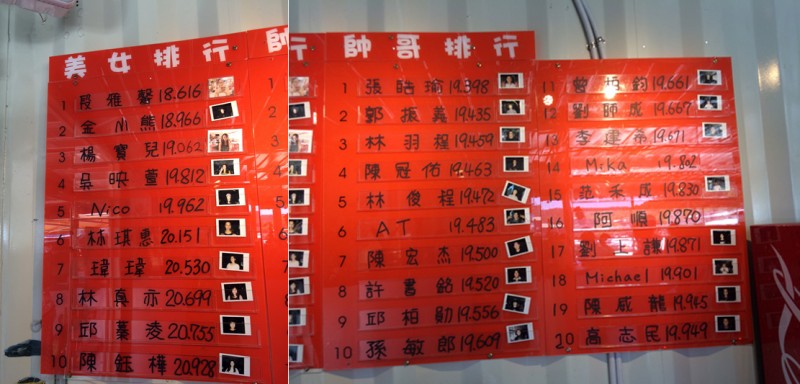 美女排行
1 段雅馨 18.616
2 金川熊 18.966
3 楊寶兒 19.062
4 吳映萱 19.812
5 Nico 19.962
6 林琪惠 20.151
7 瑋瑋 20.530
8 林真亦 20.699
9 邱蓁凌 20.755
10 陳鈺樺 20.928
帥
1
2
3
4
5
6
7
8
9
10
帥哥排行
1 張晧瑜 19.398
2 郭振義 19.435
3 林羽程 19.459
4 陳冠佑 19.463
5 林俊程 19.472
6 AT 19.483
7 陳宏杰 19.500
8 許書銘 19.520
9 邱柏勛 19.556
10 孫敏郎 19.609
11 曾哲鈞 19.661
12 劉師成 19.667
13 李建 19.671
14 Mika 19.802
15 范禾成 19.830
16 阿順 19.870
17 劉上謙 19.871
18 Michael 19.901
19 陳威龍 19.945
20 高志民 19.949